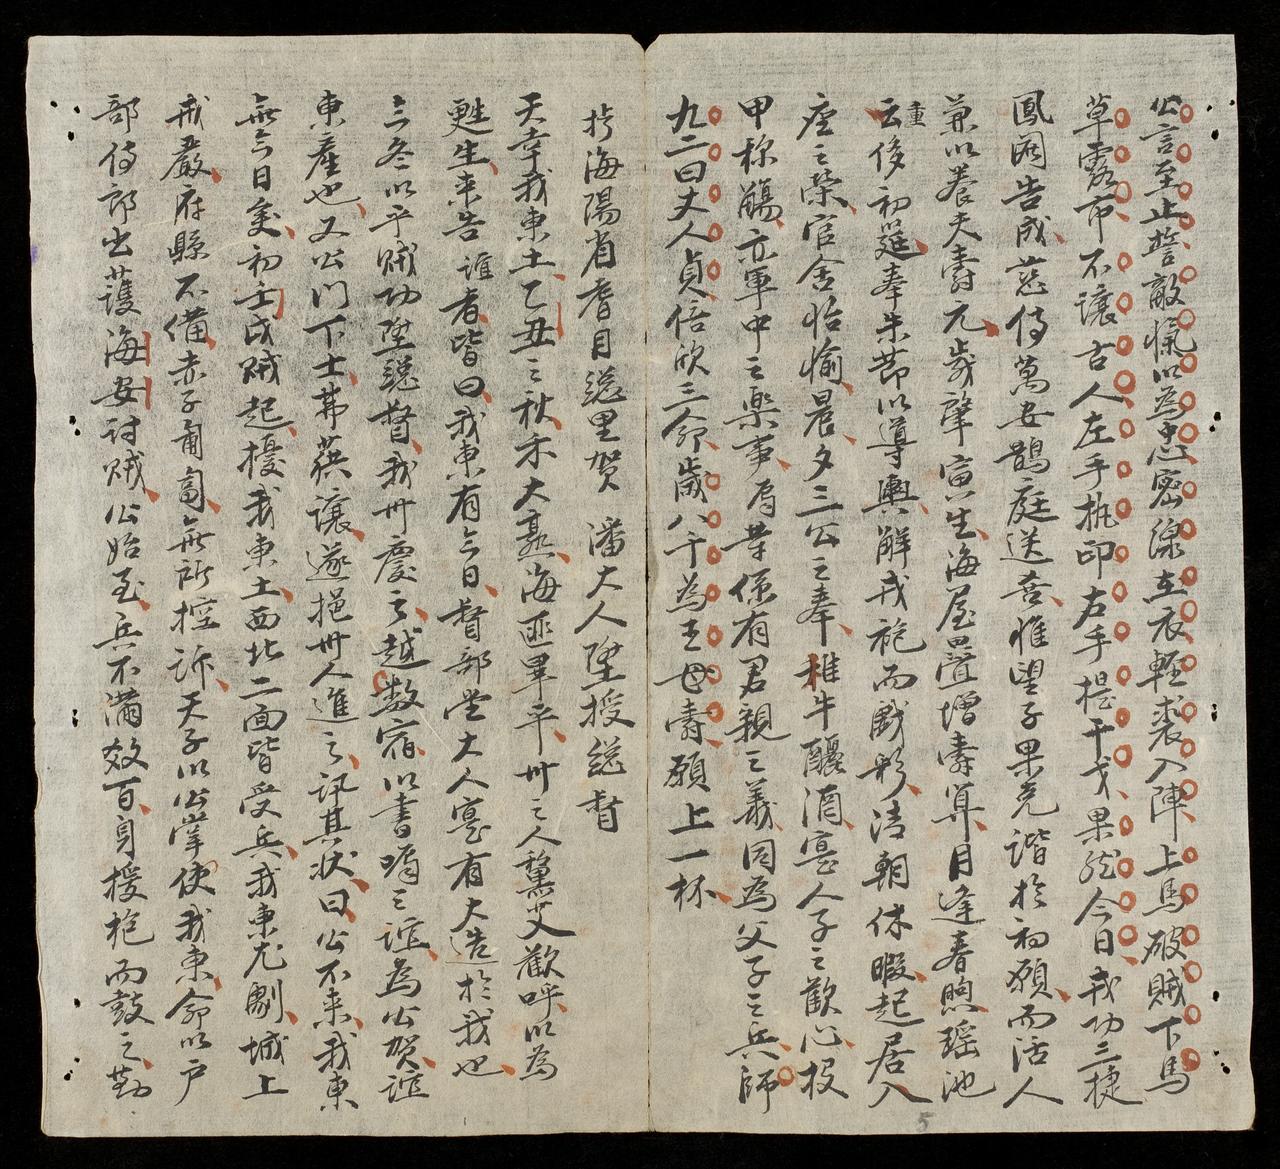 公言至止誓敵愾以為忠密線在衣輕裘入陣上馬破賊下馬
草露布不讓古人左手執印右手提干戈果然今日我功三捷
鳳闕告成慈侍萬安鵲庭送喜惟望子果克諧於初願而活人
兼以養夫壽元歲肇寅生海屋疊增壽算月逢春煦瑤池
重云侈初筵奉朱節以導輿解戎袍而戲彩清朝休暇起居八
座之榮官舍怡愉晨夕三公之奉椎牛釃酒寔人子之歡心投
甲稱觴亦軍中之樂事肩等係有君親之義因為父子之兵師
九二曰丈人貞倍欣三命歲八千為王母壽願上一杯
擬海陽省耆目總里賀 潘大人陞授總督
天幸我東土乙丑之秋禾大熟海匪畢平卅之人黧艾歡呼以為
甦生來告誰者皆曰我東有今日督部堂大人寔有大造於我也
今冬以平賊功陞總督我卅慶之越數宿以書囑之誰為公賀誼
東產也又公門下士弗獲讓遂挹卅人進之訊其狀曰公不來我東
無今日矣初壬戌賊起擾我東土西北二面皆受兵我東尤劇城上
戒嚴府縣不備赤子匍匐無所控訴天子以公掌使我東命以戶
部侍郎出護海安討賊公始至兵不滿效百身援枹而鼓之勤